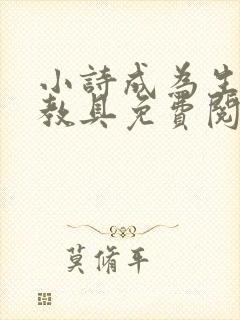 小詩成為生
教具免費閱
莫脩平